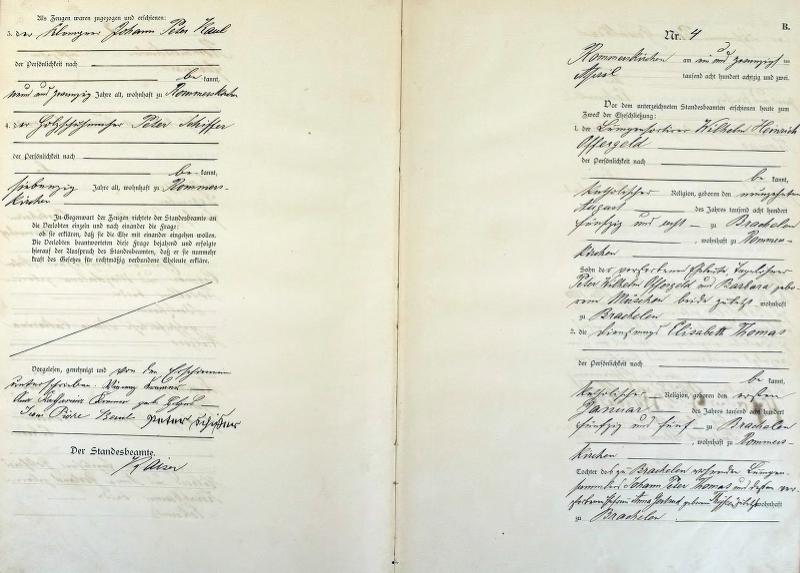 Als Zeugen waren zugezogen und erschienen:
3. der Johann Peter Kaul
der Persönlichkeit nach
be kannt,
neun und zwanzig Jahre alt, wohnhaft zu Rommerskirchen
4. der Holzschuhmacher Peter Schiffer
der Persönlichkeit nach
be kannt,
siebenzig Jahre alt, wohnhaft zu Rommers-
kirchen
In Gegenwart der Zeugen richtete der Standesbeamte an
die Verlobten einzeln und nach einander die Frage:
ob sie erklären, daß sie die Ehe mit einander eingehen wollen.
Die Verlobten beantworteten diese Frage bejahend und erfolgte
hierauf der Ausspruch des Standesbeamten, daß er sie nunmehr
kraft des Gesetzes für rechtmäßig verbundene Eheleute erkläre.
Vorgelesen, genehmigt und von den Erschienenen
unterschrieben.
Anna Katharina
Peter Schiffer
Der Standesbeamte.
B.
Nr. 4
Rommerskirchen am ein und zwanzigsten
April tausend acht hundert achtzig und zwei.
Vor dem unterzeichneten Standesbeamten erschienen heute zum
Zweck der Eheschließung:
1. der Lumpensortirer Wilhelm Heinrich
Offergeld
der Persönlichkeit nach
be kannt,
katholischer Religion, geboren den neunzehnten
August des Jahres tausend acht hundert
fünfzig und sechs zu Brachelen
, wohnhaft zu Rommers-
kirchen
Sohn der verstorbenen Eheleute Tagelöhner
Peter Wilhelm Offergeld und Barbara gebo-
rene beide zuletzt wohnhaft
zu Brachelen
2. die Dienstmagd Elisabeth Thomas
der Persönlichkeit nach
be kannt,
katholischer Religion, geboren den ersten
Januar des Jahres tausend acht hundert
fünfzig und fünf zu Brachelen
, wohnhaft zu Rommers-
kirchen
Tochter des zu Brachelen wohnenden Lumpen-
sammlers Johann Peter Thomas und dessen ver-
storbenen Ehefrau Anna geborene zuletzt wohnhaft
zu Brachelen